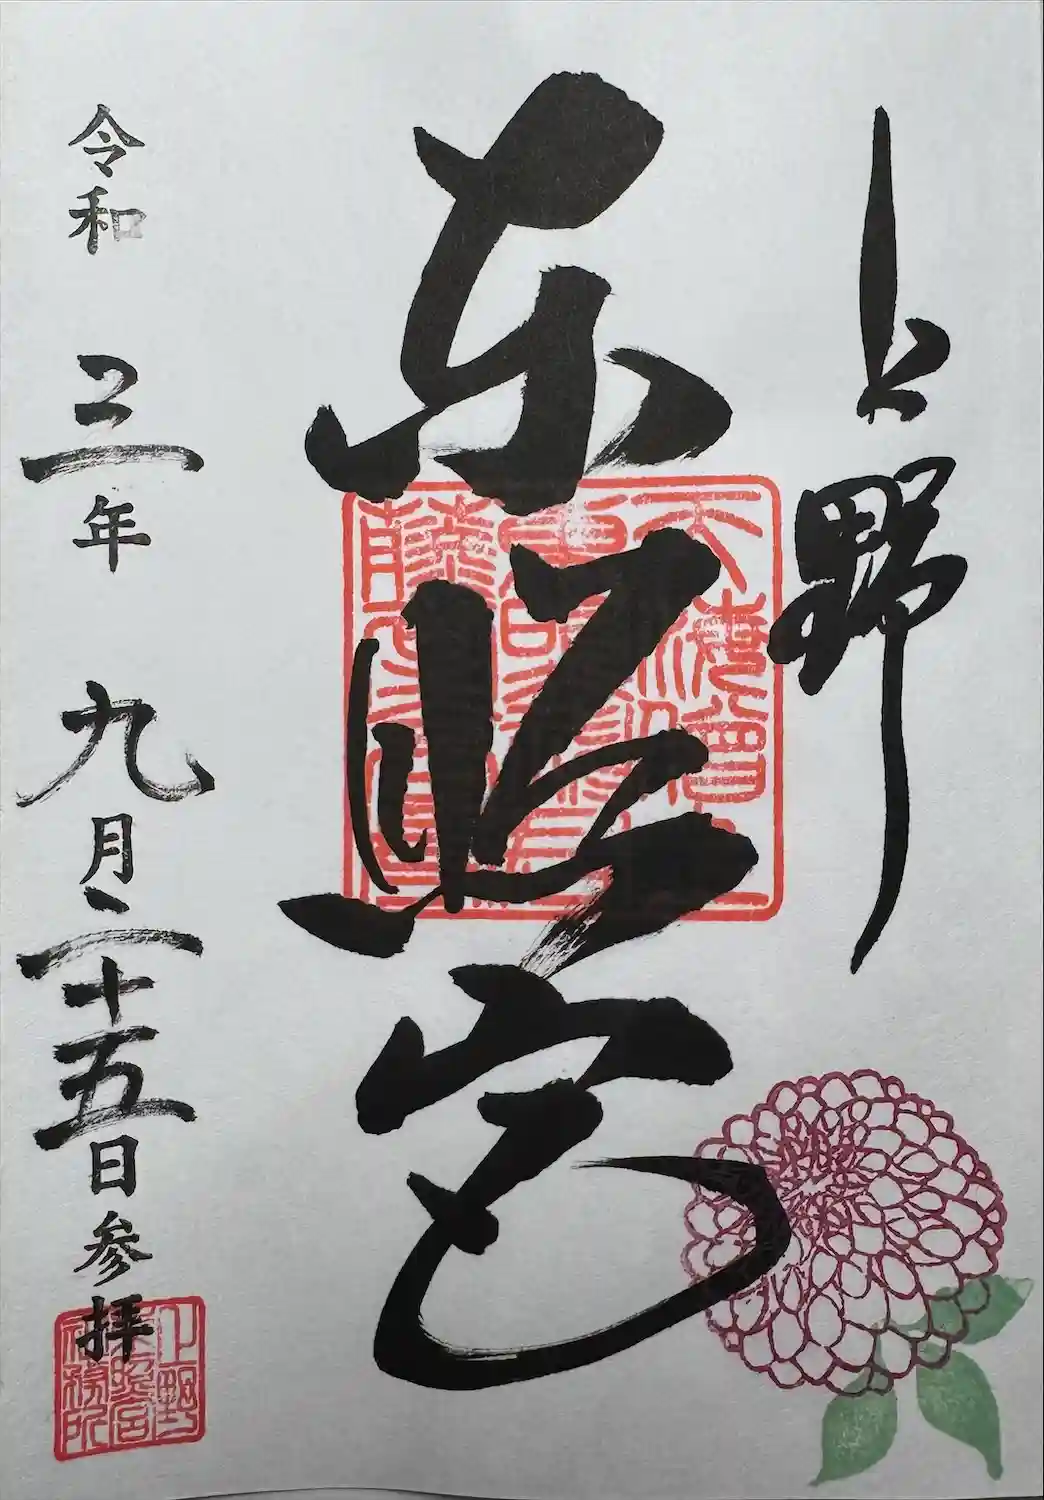 上野
東照宮
令和三年九月二十五日参拝
上野
東照宮
社務所